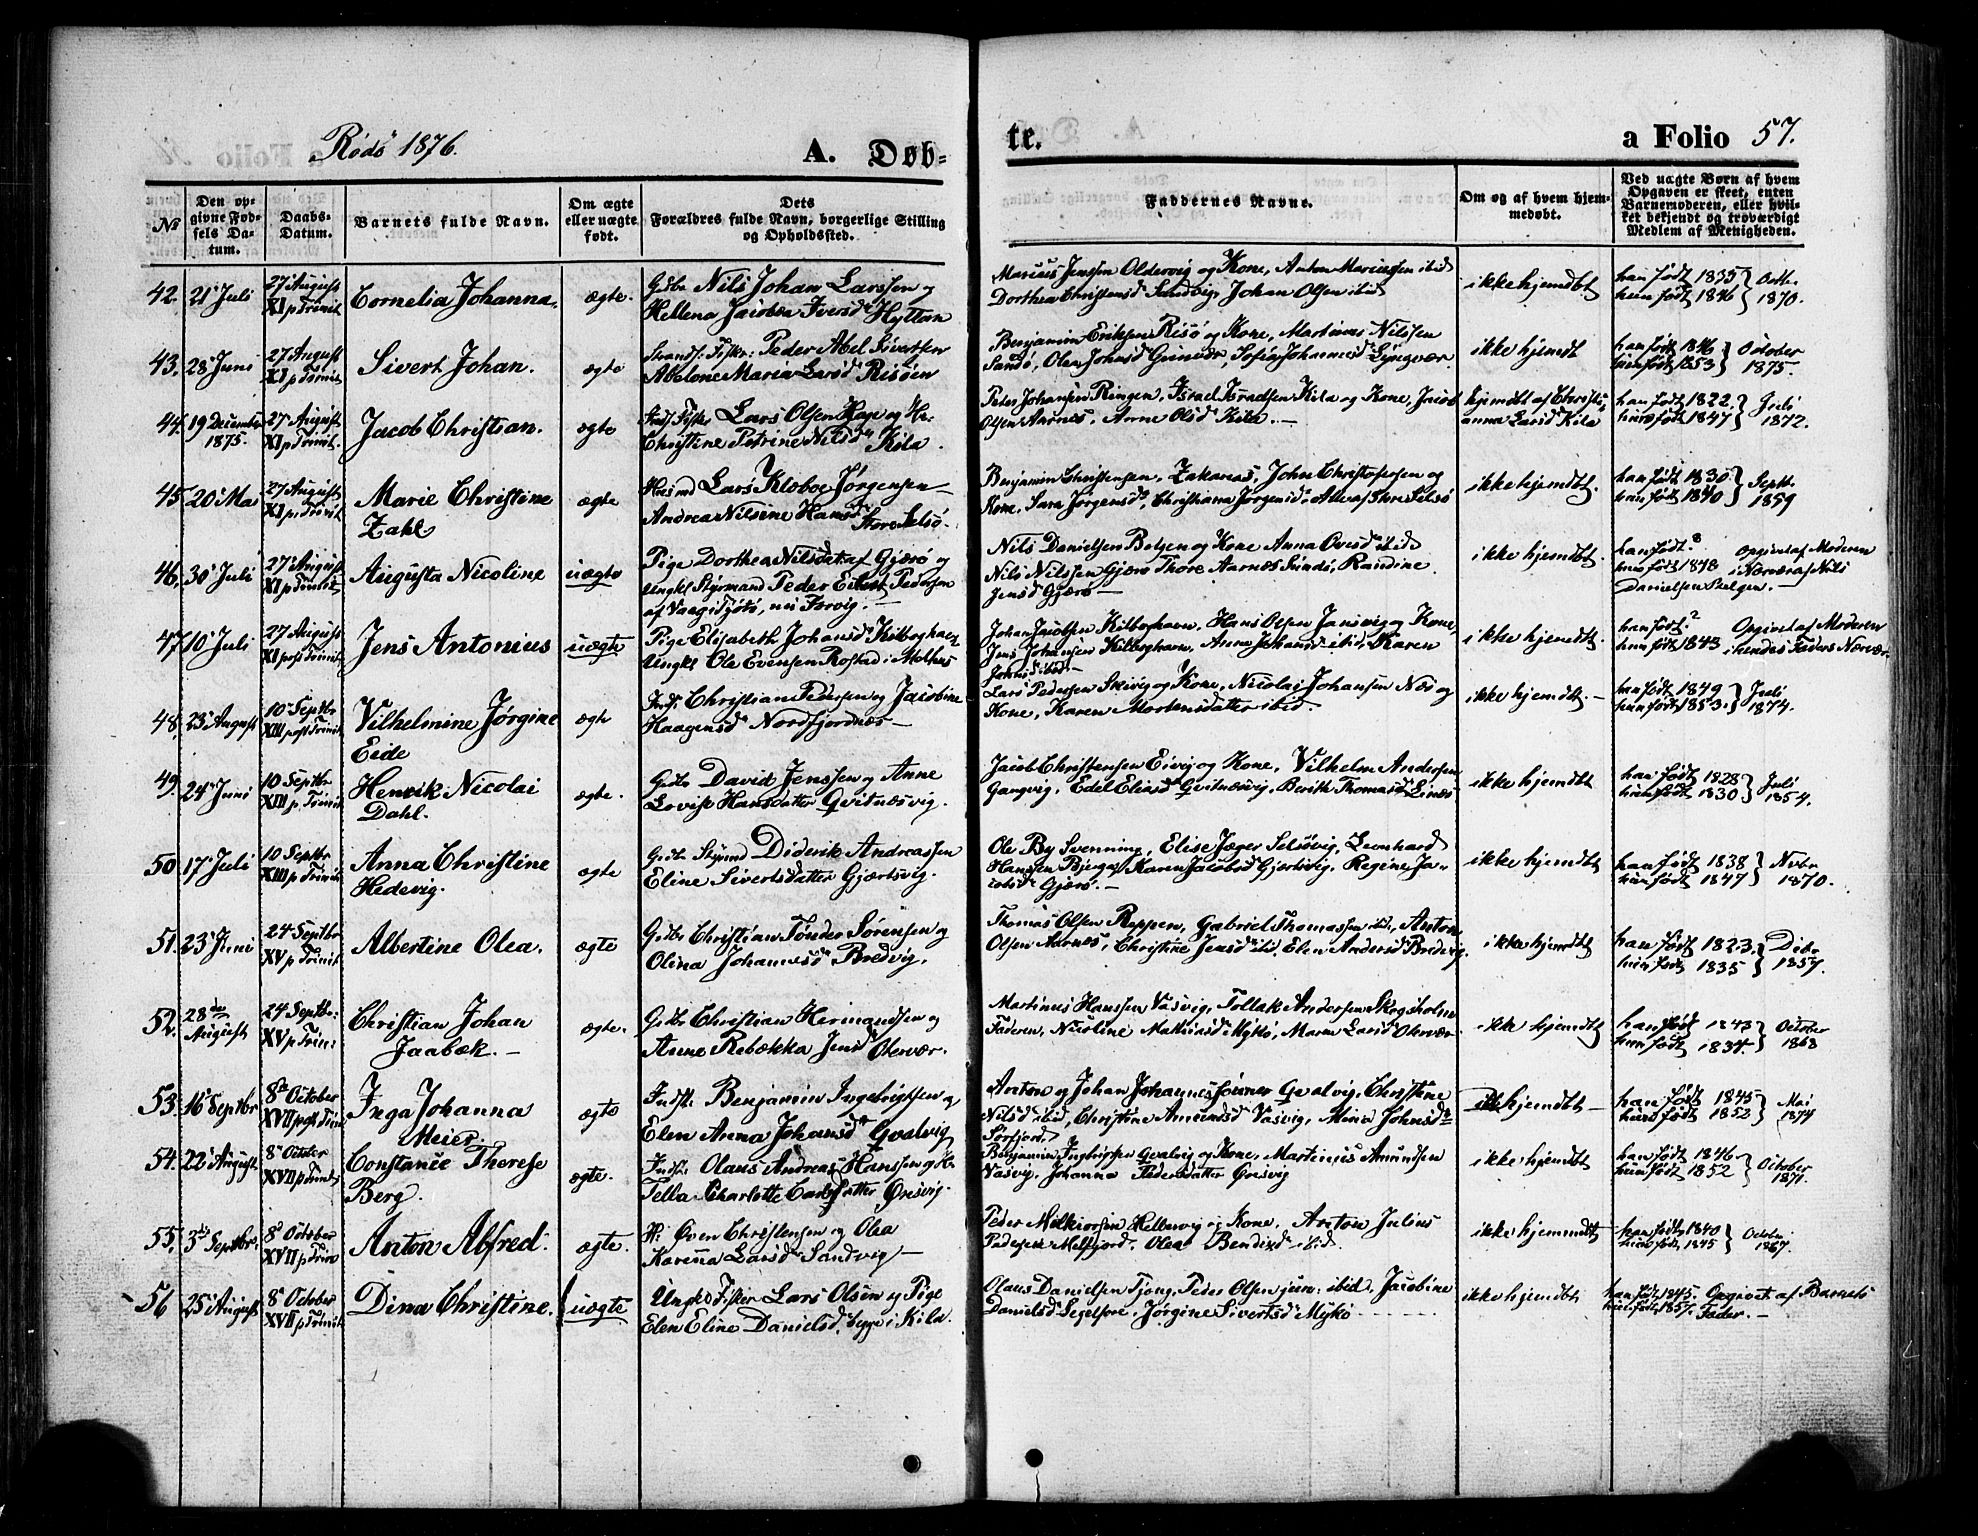 Rödö 1876.
A. Døb-
te.
a Folio 57.
№
Den op-
givne Fød-
sels Da-
tum.
Daabs-
Datum.
Barnets fulde Navn.
Om ægte
eller uægte
født.
Dets
Forældres fulde Navn, borgerlige Stilling
og Opholdssted.
Faddernes Navne.
Om og af hvem hjem-
medøbt.
Ved uægte Børn af hvem
Opgaven er skeet, enten
Barnemoderen, eller hvil-
ket bekjendt og troværdigt
Medlem af Menigheden.
42. 21 Juli
27 August
XI p Trinit
Cornelia Johanna.
ægte.
Gdbr Nils Johan Larssen og
Hellena Jacobea Iversd Hyttan
Marius Jenssen Oldervig og Kone, Anton Mariussen ibid
Dorthea Christensd Sandvig, Johan Olsen ibid
ikke hjemdbt
han født 1835
hun født 1846
Octbr.
1870.
43. 28 Juni
27 August
XI p Trinit
Sivert Johan.
ægte
Strands. Fisker: Peder Abel Sivertsen
Abelone Maria Larsd Risöen
Benjamin Eriksen Risö og Kone, Martinus Nilssen
Sandö, Olea Johansd Sofia Johannesd Lyngvær
ikke hjemdt
han født 1846
hun født 1853
October
1875.
44. 19 December
1875.
27 August
XI p Trinit.
Jacob Christian.
ægte
Inds Fisker Lars Olsen Hage og H.
Christine Petrine Nilsd Kila.
Peder Johansen Ringen, Israel Israelsen Kila og Kone, Jacob
Olsen Aarnes, Anne Olsd Kila.
hjemdbt af Christi-
anna Larsd Kila
han født 1822.
hun født 1847
Juli
1872.
45. 20 Mai
27 August
XI p Trinit
Marie Christine
Zahl
ægte
Husmd Lars Kloboe Jørgensen
Andrea Nilsine Hansd Store Selsö.
Benjamin Christensen, Zakarias, John Christophersen og
Kone, Sara Jørgensd, Christiana Jørgensd, Alle af Store Selsö
ikke hjemdbt.
han født 1830
hun født 1840
Septbr.
1859
46. 30 Juli
27 August
XI p Trinit
Augusta Nicoline
uægte
Pige Dorthea Nilsdat. af Gjærö og
Ungkl Styrmand Peder Eilert Pedersen
af Vaag i Fjøtö, nu Forvig.
Nils Danielsen Bolgen og Kone Anna Ovesd ibid
Nils Nilssen Gjærö Thore Aarnes Randine
Jensd Gjærö
ikke hjemdbt.
han født?
hun født 1848
Opgivet af Moderen
i Nærvær af Nils
Danielsen
47. 10 Juli
27 August
XI post Trinit.
Jens Antonius
uægte
Pige Elisabeth Johansd Kilboghavn
Ungkl Ole Evensen Rostad i Melhus
Johan Jacobsen Kilboghavn, Hans Olsen Jansvig og Kone,
Jens Johansen Kilboghavn, Anna Johansd ibid, Karen
Johnsd ibid.
ikke hjemdbt.
han født?
hun født 1843
Opgivet af Moderen
i hendes Faders Nærvær
48. 23 August
10 Septbr
XIII post Trinit.
Vilhelmine Jørgine
Eide
ægte
Inds: Christian Pedersen og Jacobine
Haagensd Nordfjordnes
Lars Pedersen Skivig og Kone, Nicolai Johansen Næs og
Kone, Karen Mortensdatter ibid.
ikke hjemdbt.
han født 1849
hun født 1853.
Juli
1874.
49. 24 Juni
10 Septbr
XIII p Trinit
Henrik Nicolai
Dahl.
ægte.
Gdbr David Jenssen og Anne
Lovise Hansdatter Qvitnæsvig.
Jacob Christensen Eivig og Kone, Vilhelm Andersen
Gangvig, Edel Eliasd Qvitnæsvig, Berith Thomasd Einæs
ikke hjemdbt
han født 1828
hun født 1830
Juli
1854.
50 17 Juli
10 Septbr
XIII p Trinit
Anna Christine
Hedevig.
ægte
Gdbr Styrmd Diderik Andreassen
Eline Sivertsdatter Gjærtsvig.
Ole By Svenning, Elise Jæger Selsövig, Leonhard
Hanssen Bjerge, Karen Jacobsd Gjertsvig, Regine Ja-
cobsd Gjærö.
ikke hjemdbt
han født 1838
hun født 1847
Nvbr
1870.
51. 23 Juni
24 Septbr
XV p Trinit
Albertine Olea.
ægte
Gdbr Christian Tønder Sørensen og
Olina Johannesd Bredvig.
Thomas Olsen Reppen, Gabriel Thomassen ibid, Anton
Olsen Aarnes, Christine Jensd ibid, Elen Andersd Bredvig.
ikke hjemdbt
han født 1823.
hun født 1835
Dcbr.
1857.
52. 28de
August
24 Septbr.
XV p Trin.
Christian Johan
Jaabæk.
ægte.
Gdbr Christian Hermandsen og
Anne Rebækka Jensd Olervær.
Martinus Hanssen Vasvig, Tollak Andersen Skogsholm
Faderen, Nicoline Mathiasd Mykö, Maren Larsd Olervær
ikke hjemdbt
han født 1843
hun født 1834.
October
1868
53. 16 Septbr
8de October
XVII post Trin
Inga Johanna
Meier.
ægte
Inds: Benjamin Ingebrigtsen og
Elen Anna Johansd Gvalvig
Anton og Johan Johannessønner Gvalvig, Christine
Nilsd ibid, Christine Amundsd Vasvig, Mina Johnsd
Sörfjord.
ikke hjemdbt
han født 1845
hun født 1852
Mai
1874
54. 22 August.
8 October
XVII p Trinit
Constance Therese
Berg.
ægte.
Inds: Olaus Andreas Hanssen og H.
Tella Charlotte Carlsdatter Øresvig.
Benjamin Ingebrigtsen Gvalvig og Kone, Martinus Amundsen
Vasvig, Johanna Pedersdatter Øresvig
ikke hjemdbt
han født 1846
hun født 1852
October
1871.
55. 3die Septbr.
8 October
XVII p Trin
Anton Alfred.
ægte.
H: Oven Christensen og Olea
Karina Larsd Sandvig
Peder Melkiorsen Hellervig og Kone, Anton Julius
Pedersen Melfjord, Olea Bendixd ibid.
ikke hjemmdbt
han født 1840
hun født 1845
October
1867.
56 25 August
8 October
XVII p Trinit
Dina Christine.
uægte
Ungkl Fisker Lars Olsen og Pige
Elen Eline Danielsd, begge i Kila.
Olaus Danielsen Tjong, Peder Olsen jun: ibid, Jacobine
Danielsd Segelfore, Jørgine Sivertsd Mykö
ikke hjemdbt
han født 1845.
hun født 1857.
Opgivet af Barnets
Fader.